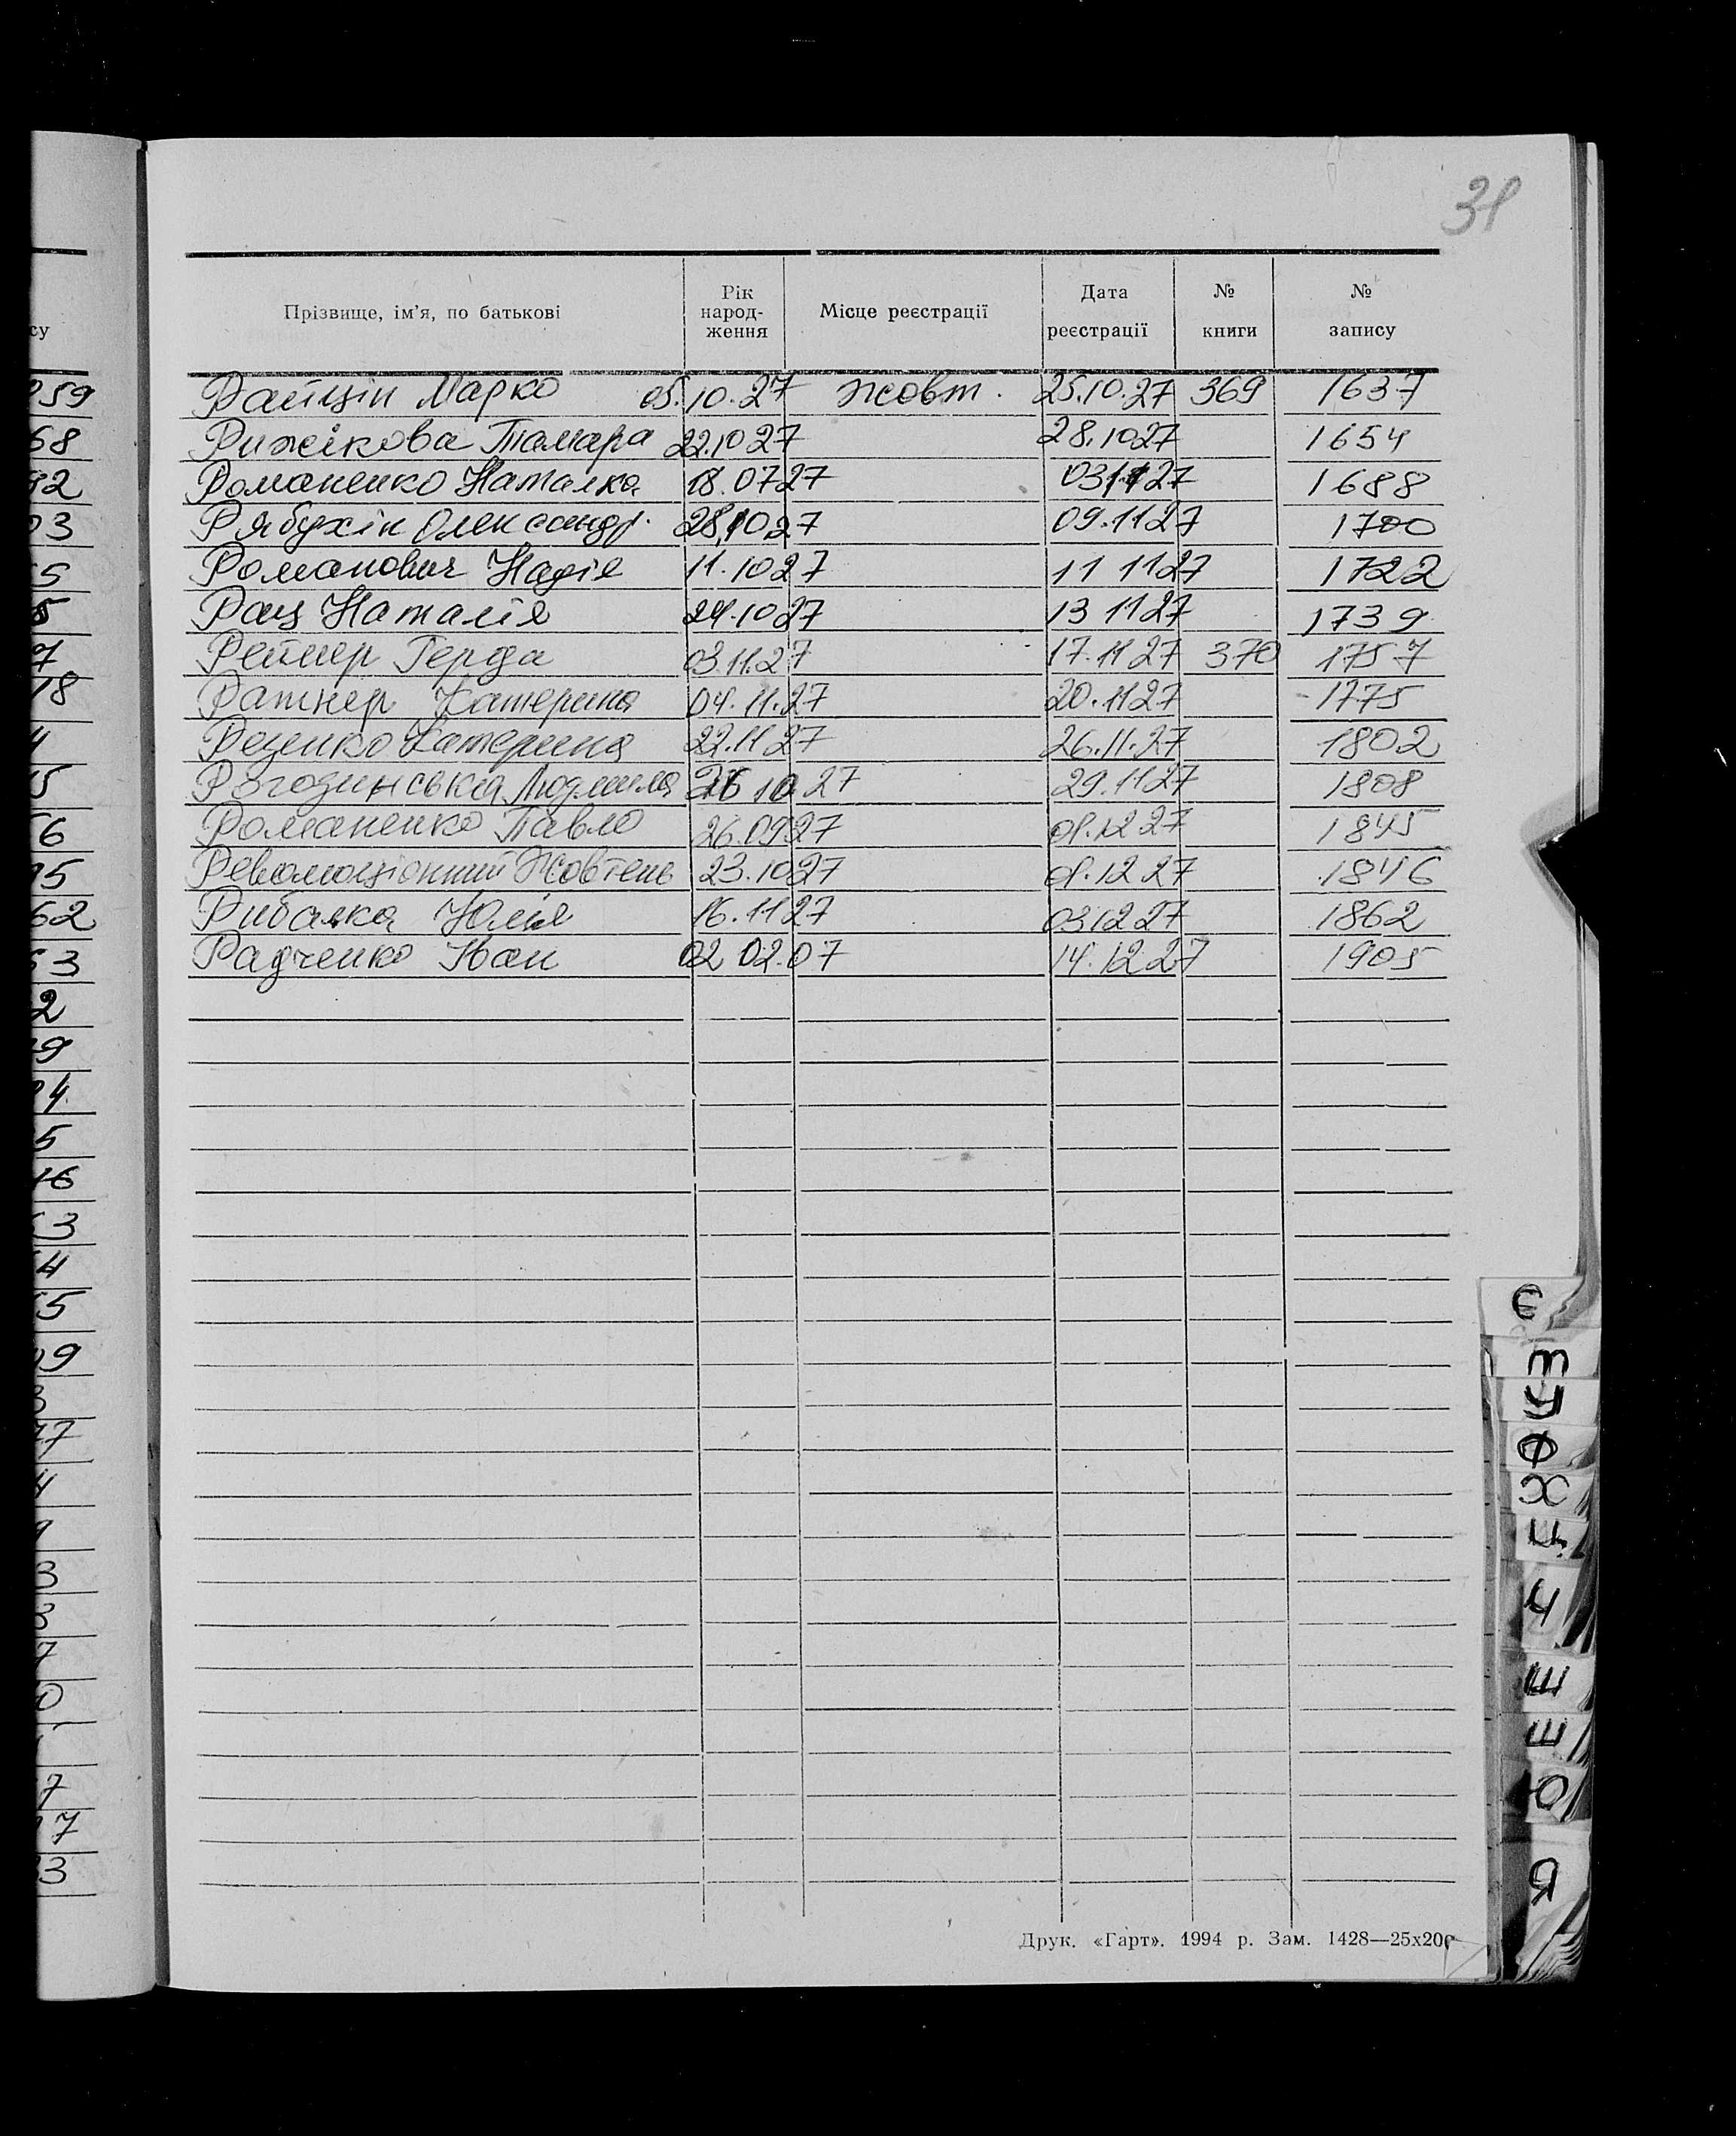 31
Прізвище, ім'я, по батькові Рік народ-ження Місце реєстрації Дата реєстрації № книги № запису
Райцін Марко 05.10.27 Жовт. 25.10.27 369 1637
Рижікова Тамара 22.10 27 28.10 27 1654
Романенко Наталка 18.07 27 03 11 27 1688
Рябухін Олександр. 28.10 27 09.11 27 1700
Романович Надія 11.10 27 11 11 27 1722
Рац Наталія 24.10 27 13 11 27 1739
Рейнер Герда 03.11.27 17.11 27 370 1757
Ратнер Катерина 04.11.27 20.11 27 1775
Рецепко Катерина 22.11 27 26.11.27 1802
Рогозинська Людмила 26 10 27 29.11 27 1808
Романенко Павло 26.09 27 01.12 27 1845
Революціонний Жовтень 23.10 27 01.12 27 1846
Рибалка Юлія 16.11 27 03 12 27 1862
Радченко Іван 02 02.07 14.12 27 1905
Друк. «Гарт». 1994 р. Зам. 1428—25х200
Є
Т
У
Ф
Х
Ц
Ч
Ш
Щ
Ю
Я